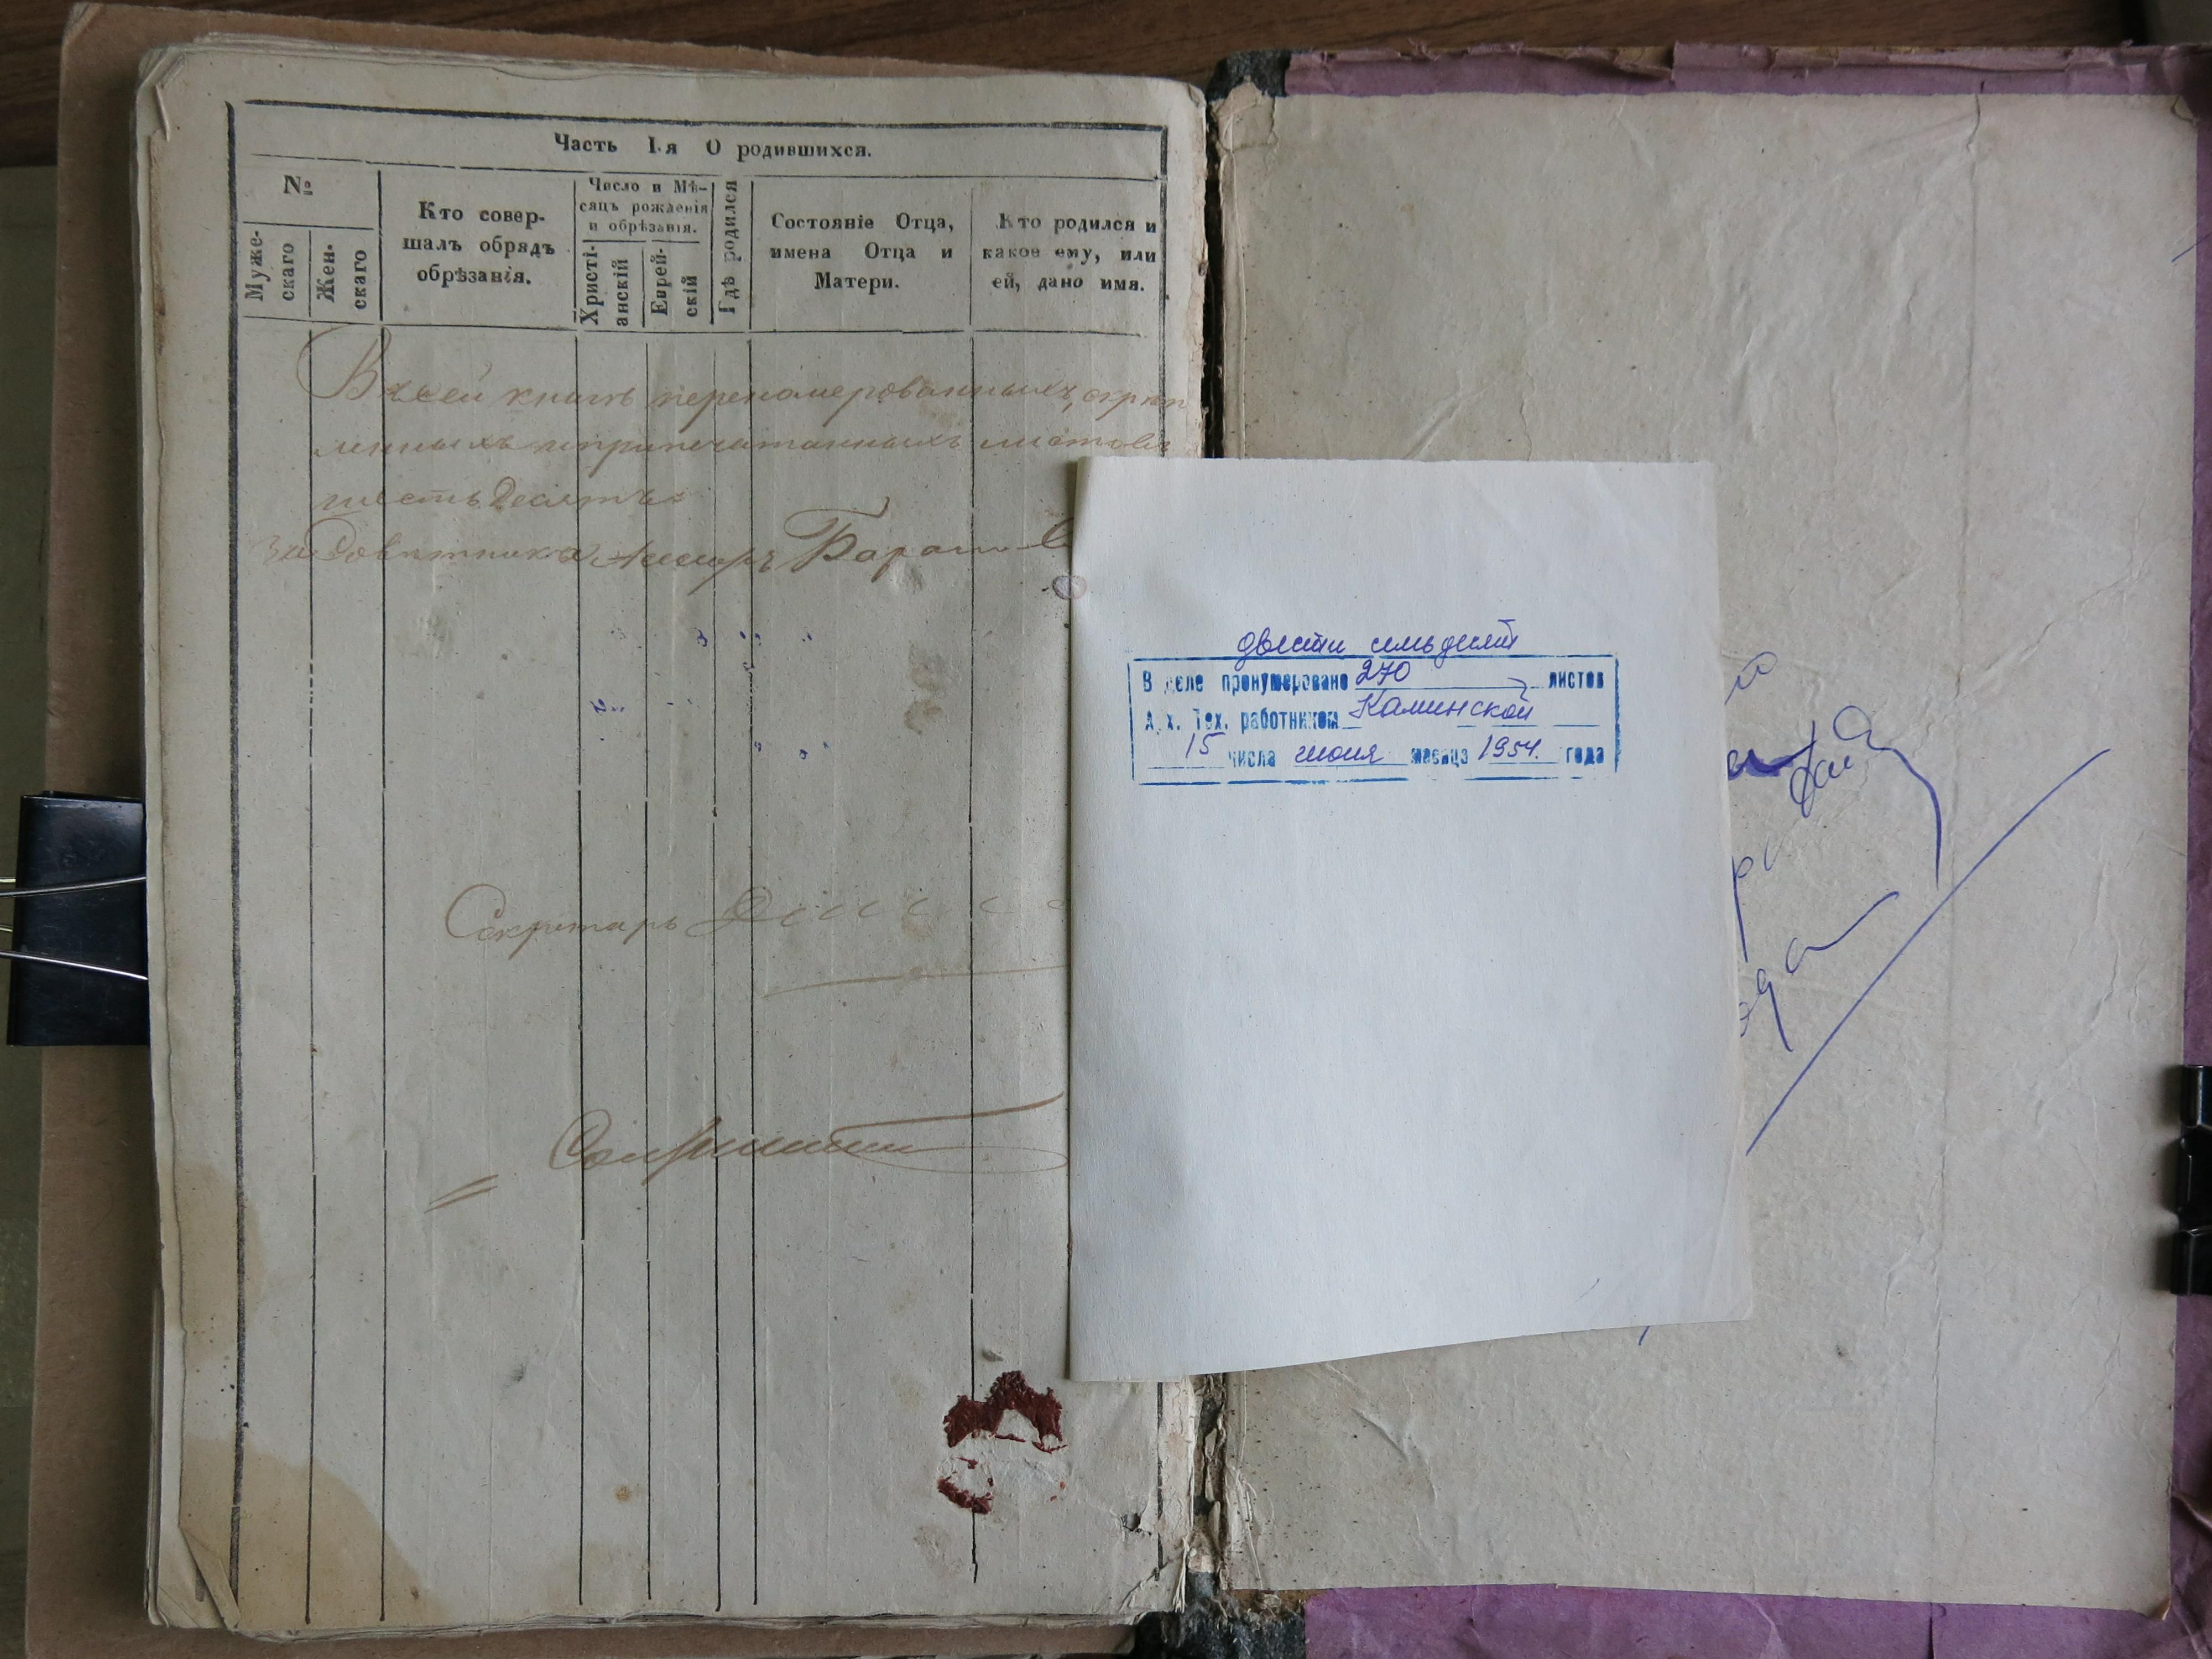 Часть I.я О родившихся.
№
Муже-
скаго
Жен-
скаго
Кто совер-
шалъ обрядъ
обрѣзанія.
Число и Мѣ-
сяцъ рожденія
и обрѣзанія.
Христі-
анскій
Еврей-
скій
Гдѣ родился
Состояніе Отца,
имена Отца и
Матери.
Кто родился и
какое ему, или
ей, дано имя.
В сей книгѣ перенумерованныхъ, скрѣп
ленныхъ и припечатанныхъ листовъ
шестьдесятъ
За Совѣтника
Секретарь
двести семьдесят
В деле пронумеровано 270 листов
Арх. Тех. работником Каминской
15 числа июня месяца 1954. года